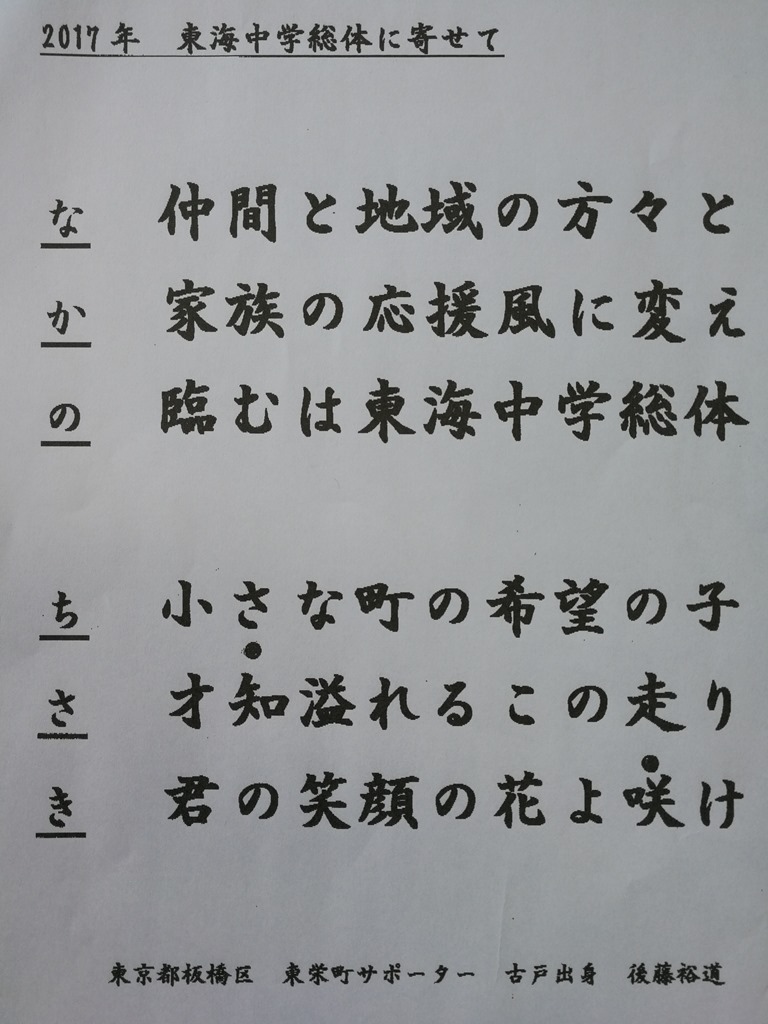 2017年　東海中学総体に寄せて
な　仲間と地域の方々と
か　家族の応援風に変え
の　臨むは東海中学総体
ち　小さな町の希望の子
さ　才知溢れるこの走り
き　君の笑顔の花よ咲け
東京都板橋区　東栄町サポーター　古戸出身　後藤裕道